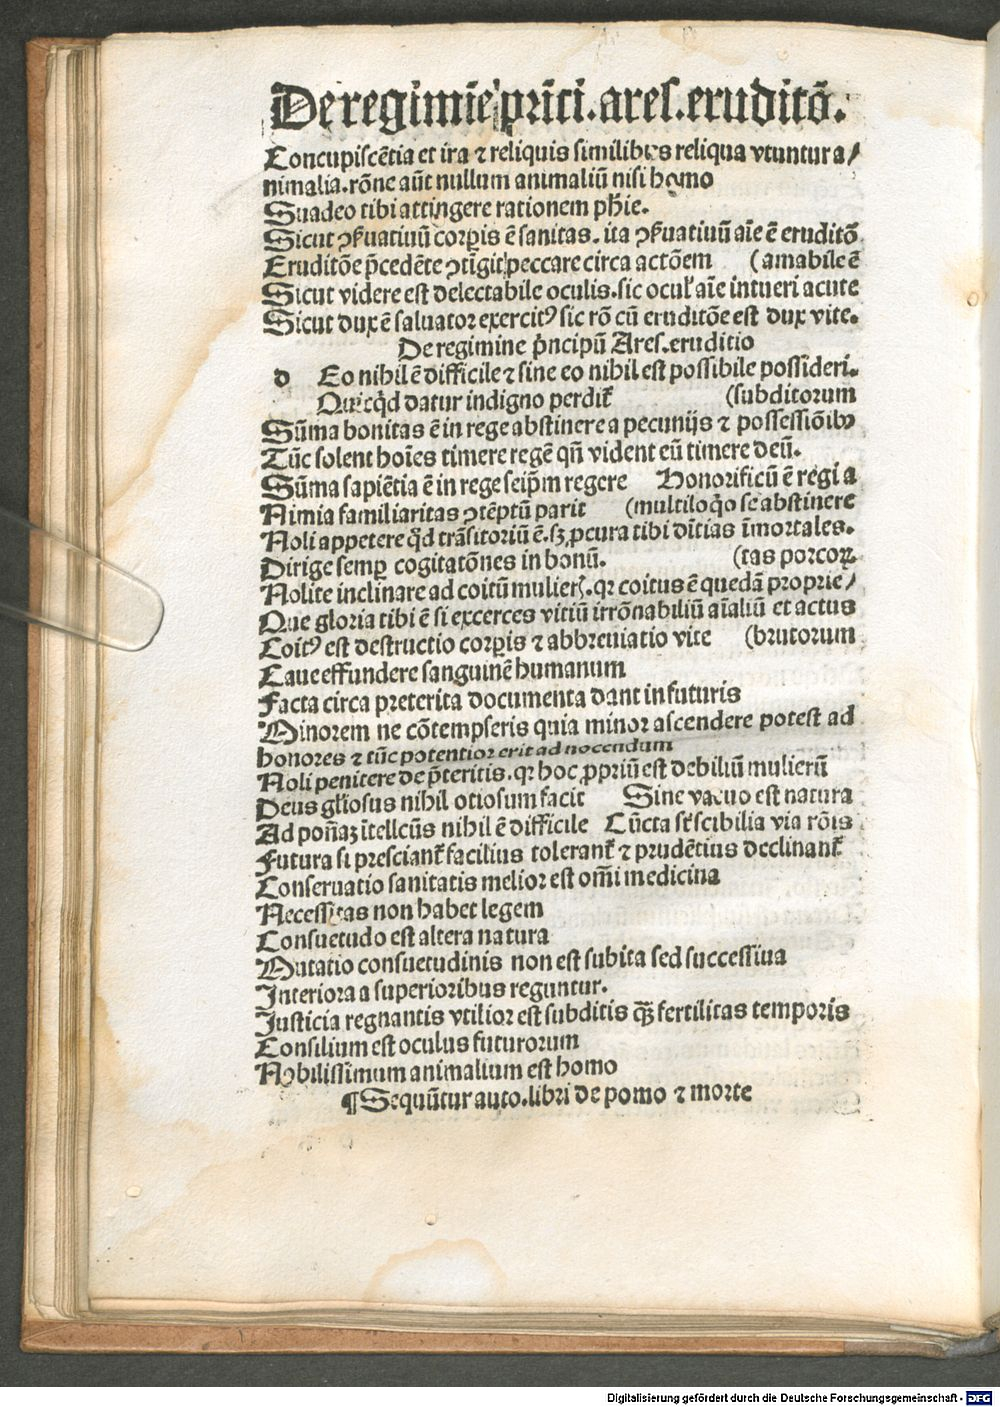 De regimīe prīci. ares. eruditō.
Concupiscētia et ira ⁊ reliquis similibus reliqua vtuntur a/
nimalia. rōne aūt nullum animaliū nisi homo
Suadeo tibi attingere rationem phīe.
Sicut ꝯẜuatiuū corꝑis ē sanitas. ita ꝯẜuatiuū aīe ē eruditō
Eruditōe p̄cedēte ꝯtīgit peccare circa actōem (amabile ē
Sicut videre est delectabile oculis. sic ocul' aīe intueri acute
Sicut dux ē saluator exercitꝰ sic rō cū eruditōe est dux vite.
De regimine p̄ncipū Ares. eruditio
d Eo nihil ē difficile ⁊ sine eo nihil est possibile possideri.
Quicq̄d datur indigno perdit᷑ (subditorum
Sūma bonitas ē in rege abstinere a pecunijs ⁊ possessiōibꝰ
Tūc solent hoīes timere regē qn̄ vident eū timere deū.
Sūma sapiētia ē in rege seip̄m regere Honorificū ē regi a
Nimia familiaritas ꝯtēptū parit (multiloq̄o se abstinere
Noli appetere q̄d trāsitoriū ē. sꝫ ꝓcura tibi dītias īmortales.
Dirige semꝑ cogitatōnes in bonū. (tas porcoꝝ
Nolite inclinare ad coitū mulierꝭ. qꝛ coitus ē quedā proprie/
Que gloria tibi ē si excerces vitiū irrōnabiliū aīaliū et actus
Coitꝰ est destructio corꝑis ⁊ abbreuiatio vite (brutorum
Caue effundere sanguinē humanum
Facta circa preterita documenta dant in futuris
Minorem ne cōtempseris quia minor ascendere potest ad
honores ⁊ tūc potentior erit ad nocendum
Noli penitere de p̄teritis. qꝛ hoc ꝓpriū est debiliū mulierū
Deus gl'iosus nihil otiosum facit Sine vacuo est natura
Ad poñaꝫ ītellc̄us nihil ē difficile Cūcta st̄ scibilia via rōis
Futura si presciant᷑ facilius tolerant᷑ ⁊ prudētius declinant᷑
Conseruatio sanitatis melior est om̄i medicina
Necessitas non habet legem
Consuetudo est altera natura
Mutatio consuetudinis non est subita sed successiua
Interiora a superioribus reguntur.
Justicia regnantis vtilior est subditis qȝ fertilitas temporis
Consilium est oculus futurorum
Nobilissimum animalium est homo
¶ Sequūtur auto. libri de pomo ⁊ morte
Digitalisierung gefördert durch die Deutsche Forschungsgemeinschaft - DFG